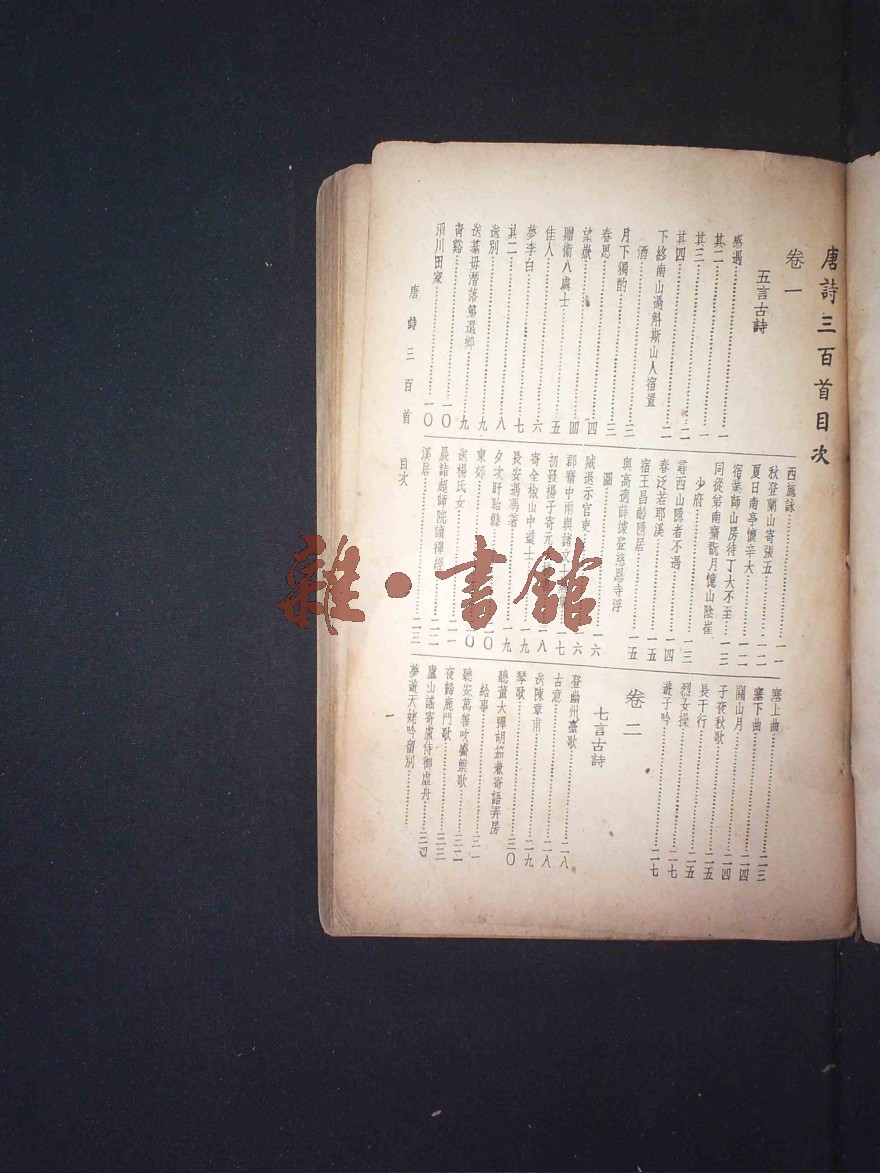 唐詩三百首目次
卷一
五言古詩
感遇……一
其二……一
其三……一
其四……二
下終南山過斛斯山人宿置
酒……二
月下獨酌……三
春思……三
望嶽……四
贈衛八處士……四
佳人……五
夢李白……六
其二……七
送別……八
送綦毋潛落第還鄉……九
青谿……九
渭川田家……一〇
西施詠……一一
秋登蘭山寄張五……一一
夏日南亭懷辛大……一二
宿業師山房待丁大不至……一二
同從弟南齋翫月憶山陰崔
少府……一三
尋西山隱者不遇……一三
春泛若耶溪……一四
宿王昌齡隱居……一五
與高適薛據登慈恩寺浮
圖……一五
賊退示官吏……一六
郡齋中雨與諸文士……一六
初發揚子寄元……一七
寄全椒山中道士……一八
長安遇馮著……一九
夕次盱眙縣……一九
東郊……二〇
送楊氏女……二〇
晨詣超師院讀禪經……二一
溪居……二三
塞上曲……二三
塞下曲……二四
關山月……二四
子夜秋歌……二四
長干行……二五
烈女操……二五
遊子吟……二七
卷二
七言古詩
登幽州臺歌……二八
古意……二八
送陳章甫……二九
琴歌……三〇
聽董大彈胡笳兼寄語弄房
給事……三一
聽安萬善吹觱篥歌……三二
夜歸鹿門歌……三三
廬山謠寄盧侍御虛舟……三四
夢遊天姥吟留別……
唐詩三百首 目次
一
雜·書館